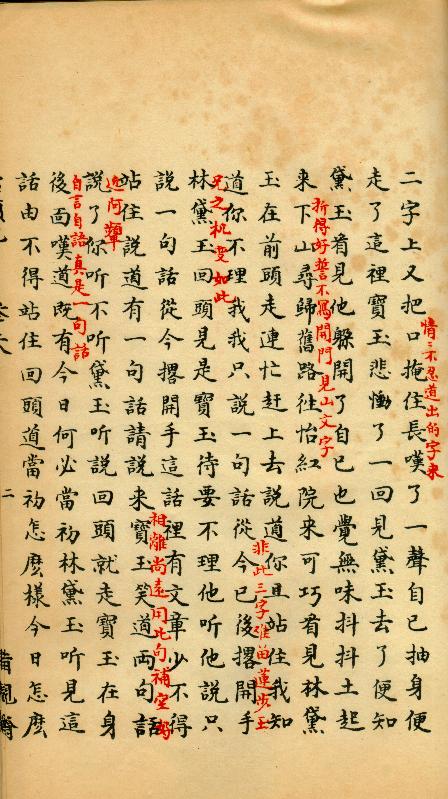 二字上又把口掩住長嘆了一聲自己抽身便
情情不忍道出的字來
走了這裡寶玉悲慟了一回見黛玉去了便知
黛玉看見他躲開了自己也覺無味抖抖土起
來下山尋歸舊路徃怡紅院來可巧看見林黛
折得好誓不寫開門見山文字
玉在前頭走連忙赶上去說道你且站住我知
非此三字難留蓮步玉
道你不理我我只說一句話從今已後撂開手
兄之机变如此
林黛玉回頭見是寶玉待要不理他聽他說只
說一句話從今撂開手這話裡有文章少不得
相離尚遠用此句補空
站住說道有一句話請說来寶玉笑道兩句話
近阿顰
說了你聽不聽黛玉聽說回頭就走寶玉在身
自言自語真是一句話
後面嘆道既有今日何必當初林黛玉聽見這
話由不得站住回頭道當初怎麼樣今日怎麼
二